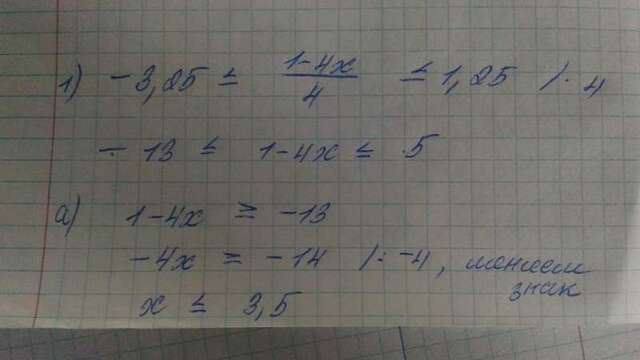 1) -3,25 ≤ (1-4x)/4 ≤ 1,25 /·4
-13 ≤ 1-4x ≤ 5
а) 1-4x ≥ -13
-4x ≥ -14 /:-4, меняем знак
x ≤ 3,5